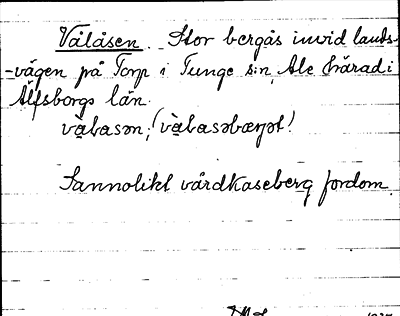 Vålåsen. Stor bergås invid lands-
-vägen på Torp i Tunge s:n, Ale härad i
Älfsborgs län.
Sannolikt vårdkaseberg fordom.